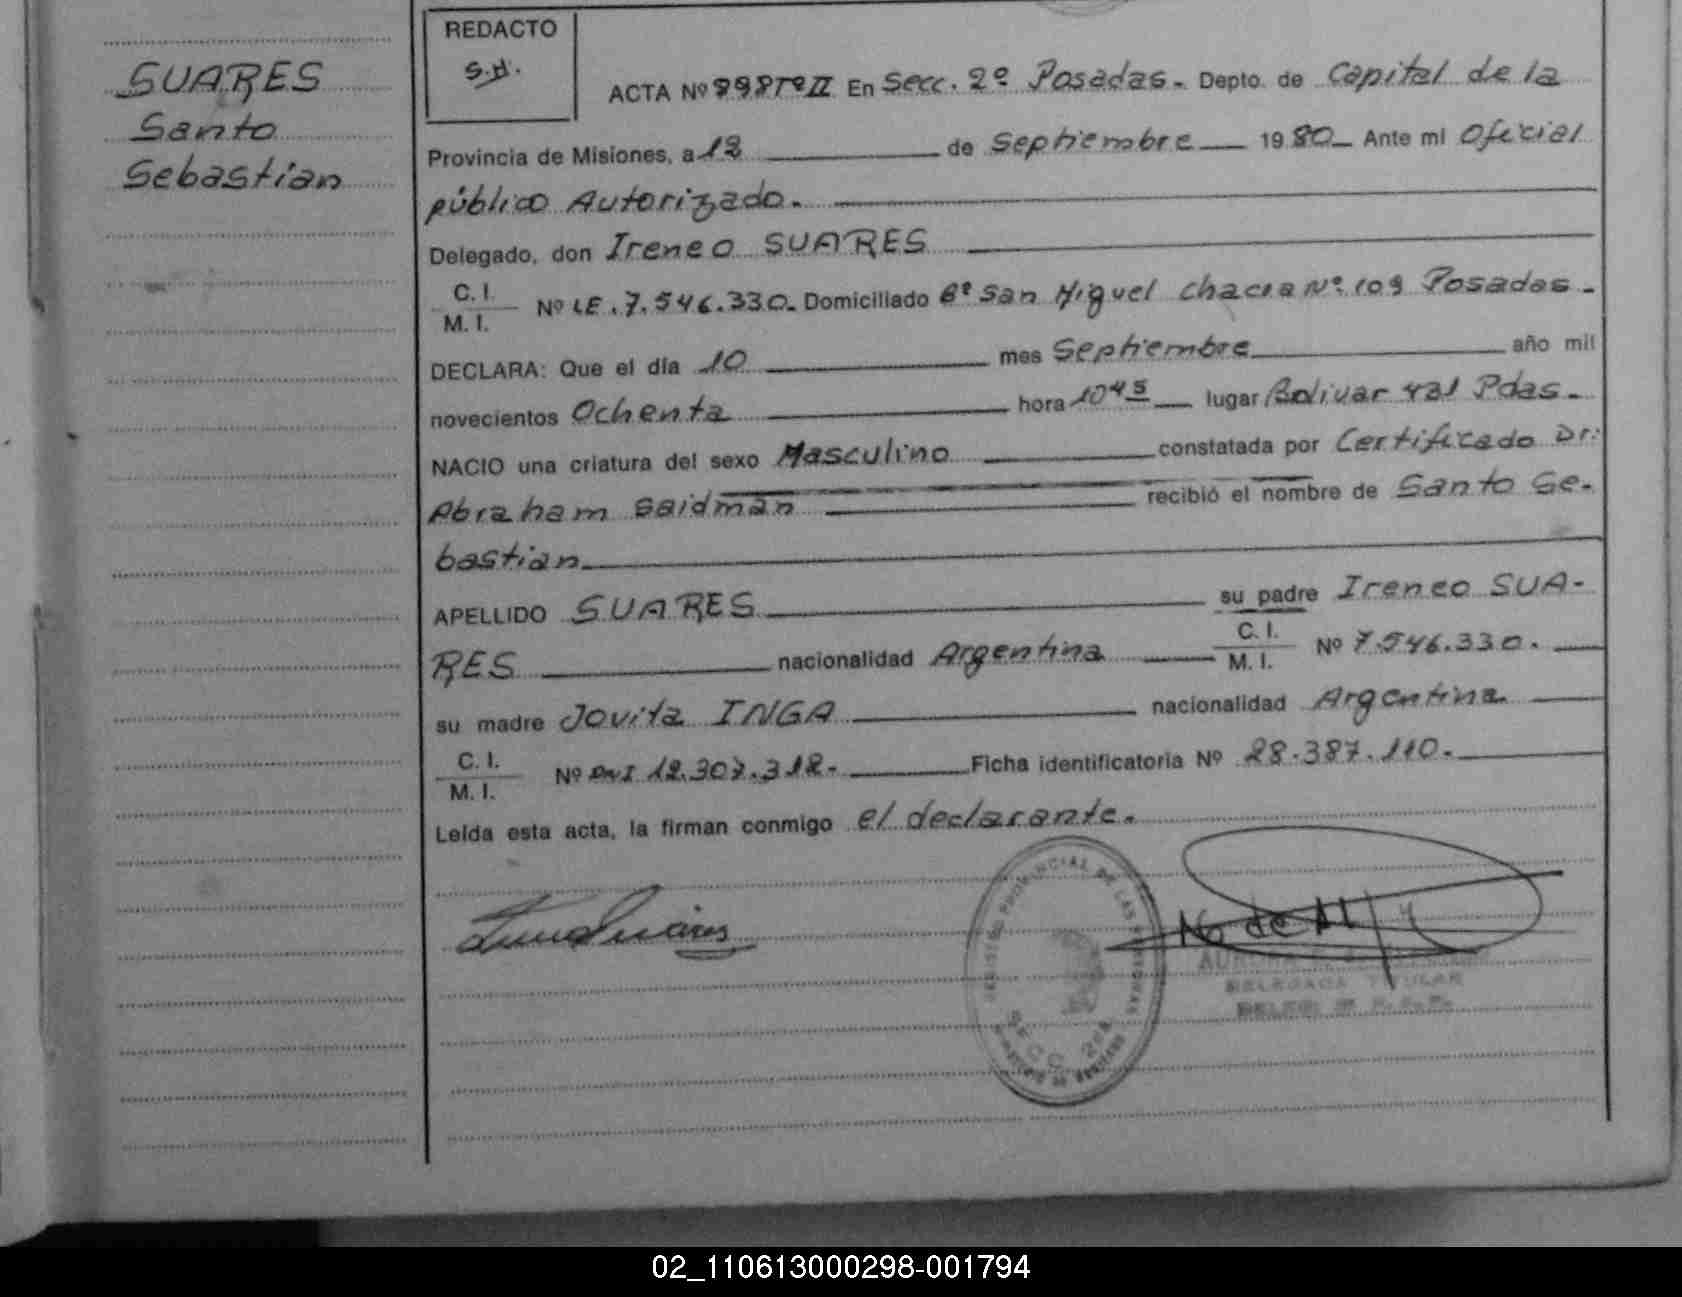 SUARES
Santo
Sebastian
REDACTO
S.H.
ACTA Nº 998 Tº II En Secc. 2º Posadas. Depto. de Capital de la
Provincia de Misiones, a 12 de Septiembre 1980 Ante mi Oficial
público Autorizado.
Delegado, don Ireneo SUARES
C. I.
M. I.
Nº LE. 7.546.330. Domiciliado Bº San Miguel Chacra Nº 109 Posadas.
DECLARA: Que el día 10 mes Septiembre año mil
novecientos Ochenta hora 10 45 lugar Bolivar 431 Pdas.
NACIO una criatura del sexo Masculino constatada por Certificado Dr:
Abraham Saidman recibió el nombre de Santo Se-
bastian
APELLIDO SUARES su padre Ireneo SUA-
RES nacionalidad Argentina C. I. M. I. Nº 7.546.330.
su madre Jovita INGA nacionalidad Argentina
C. I.
M. I.
Nº DNI 12.307.312. Ficha identificatoria Nº 28.387.110.
Leída esta acta, la firman conmigo el declarante.
REGISTRO PROVINCIAL DE LAS PERSONAS
SECC. 2da.
DELEGADA TITULAR
02_110613000298-001794